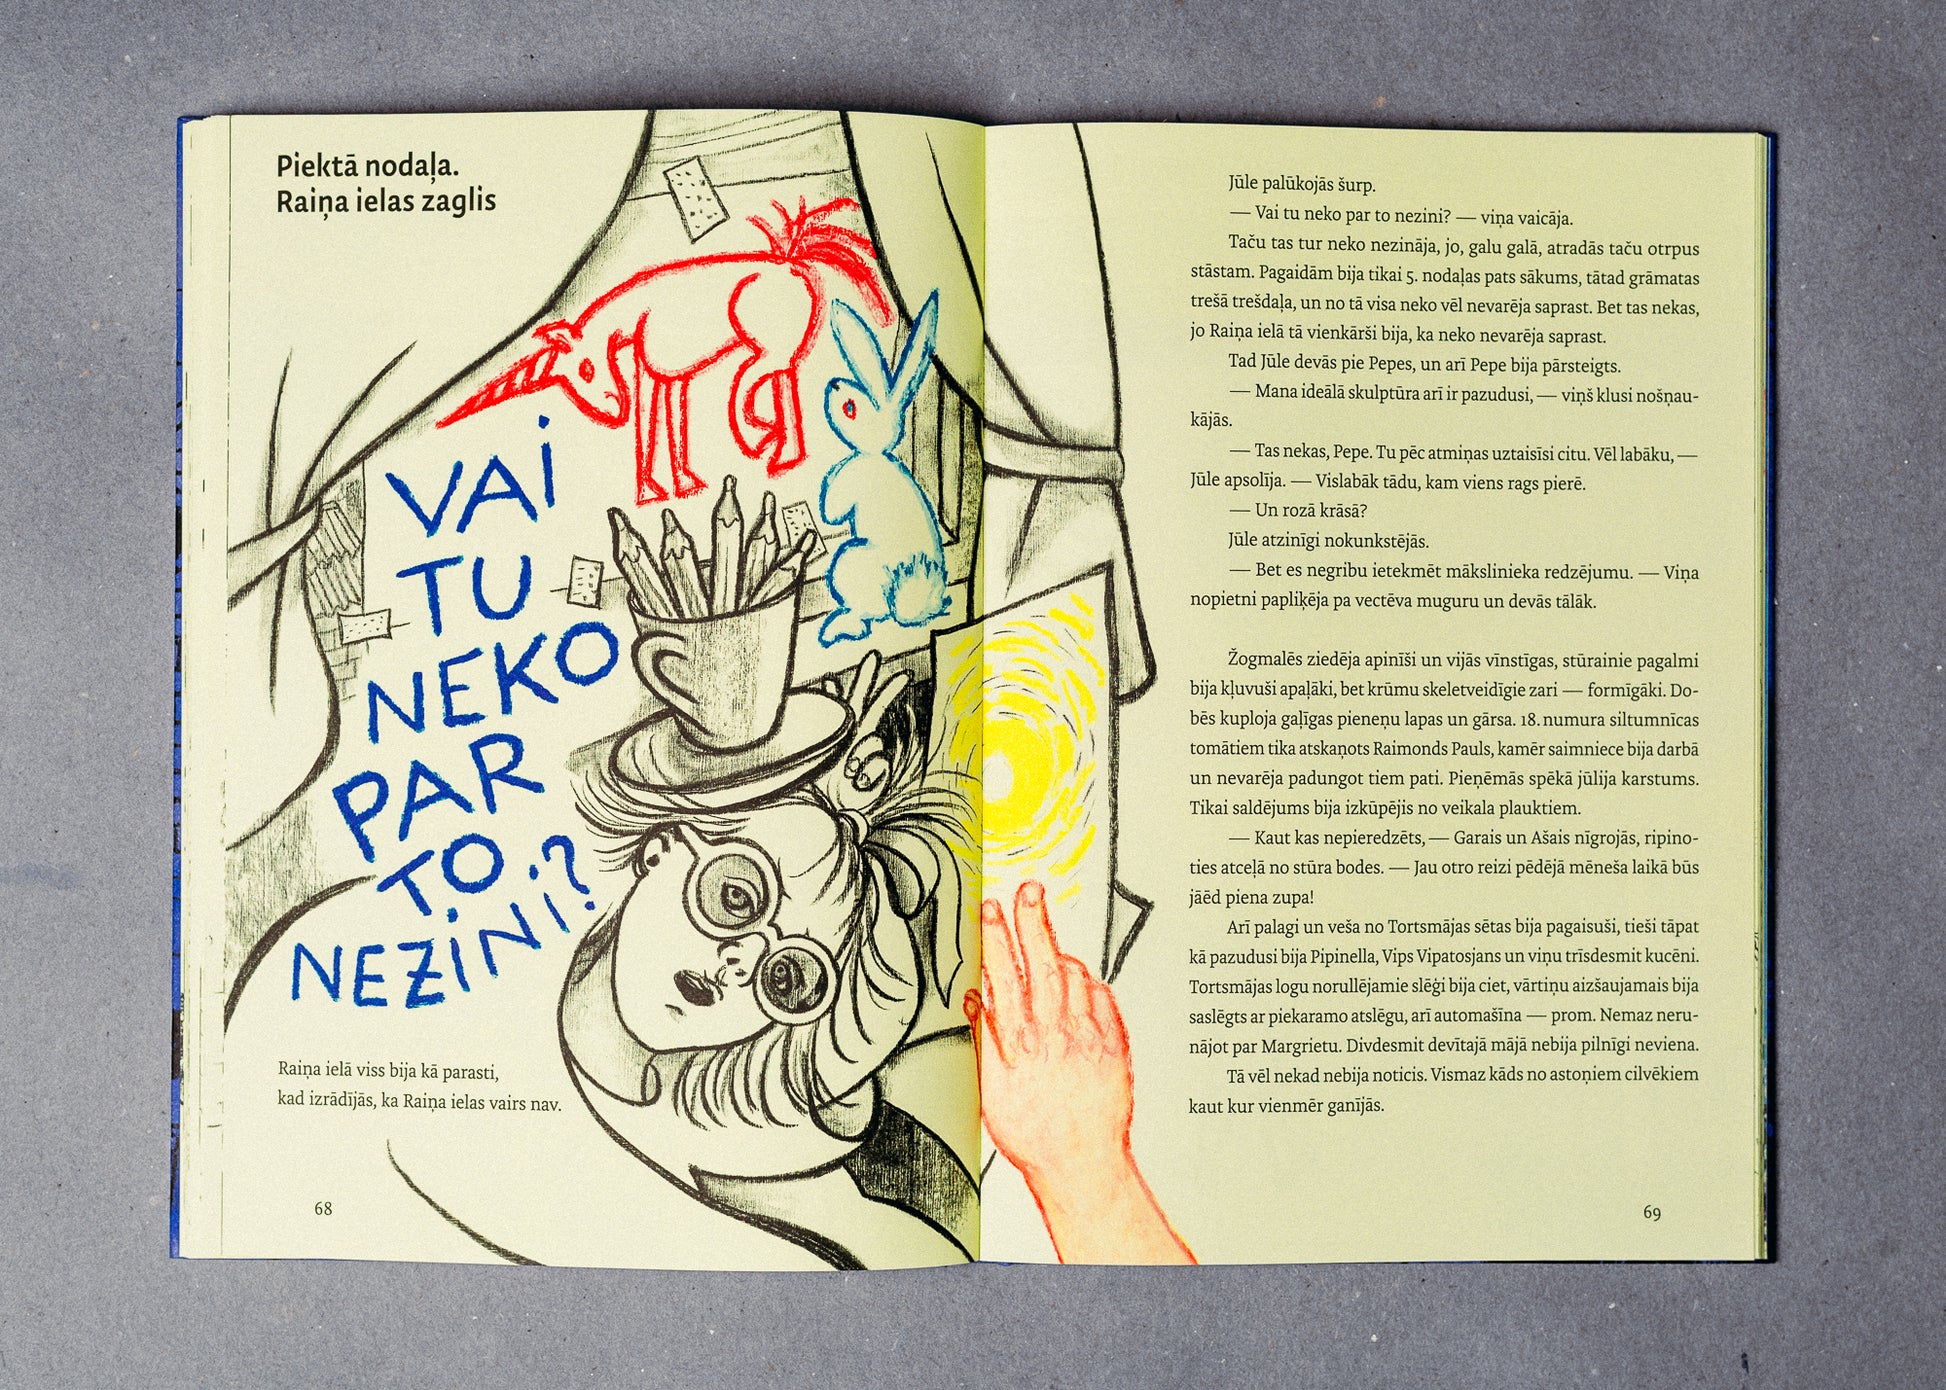 Piektā nodaļa.
Raiņa ielas zaglis
VAI
TU
NEKO
PAR
TO
NEZINI?
Raiņa ielā viss bija kā parasti,
kad izrādījās, ka Raiņa ielas vairs nav.
68
Jūle palūkojās šurp.
— Vai tu neko par to nezini? — viņa vaicāja.
Taču tas tur neko nezināja, jo, galu galā, atradās taču otrpus
stāstam. Pagaidām bija tikai 5. nodaļas pats sākums, tātad grāmatas
trešā trešdaļa, un no tā visa neko vēl nevarēja saprast. Bet tas nekas,
jo Raiņa ielā tā vienkārši bija, ka neko nevarēja saprast.
Tad Jūle devās pie Pepes, un arī Pepe bija pārsteigts.
— Mana ideālā skulptūra arī ir pazudusi, — viņš klusi nošņau-
kājās.
— Tas nekas, Pepe. Tu pēc atmiņas uztaisīsi citu. Vēl labāku, —
Jūle apsolīja. — Vislabāk tādu, kam viens rags pierē.
— Un rozā krāsā?
Jūle atzinīgi nokunkstējās.
— Bet es negribu ietekmēt mākslinieka redzējumu. — Viņa
nopietni papliķēja pa vectēva muguru un devās tālāk.
Žogmalēs ziedēja apinīši un vijās vīnstīgas, stūrainie pagalmi
bija kļuvuši apaļāki, bet krūmu skeletveidīgie zari — formīgāki. Do-
bēs kuploja gaļīgas pieneņu lapas un gārsa. 18. numura siltumnīcas
tomātiem tika atskaņots Raimonds Pauls, kamēr saimniece bija darbā
un nevarēja padungot tiem pati. Pieņēmās spēkā jūlija karstums.
Tikai saldējums bija izkūpējis no veikala plauktiem.
— Kaut kas nepieredzēts, — Garais un Ašais nīgrojās, ripino-
ties atceļā no stūra bodes. — Jau otro reizi pēdējā mēneša laikā būs
jāēd piena zupa!
Arī palagi un veša no Tortsmājas sētas bija pagaisuši, tieši tāpat
kā pazudusi bija Pipinella, Vips Vipatosjans un viņu trīsdesmit kucēni.
Tortsmājas logu norullējamie slēģi bija ciet, vārtiņu aizšaujamais bija
saslēgts ar piekaramo atslēgu, arī automašīna — prom. Nemaz neru-
nājot par Margrietu. Divdesmit devītajā mājā nebija pilnīgi neviena.
Tā vēl nekad nebija noticis. Vismaz kāds no astoņiem cilvēkiem
kaut kur vienmēr ganījās.
69